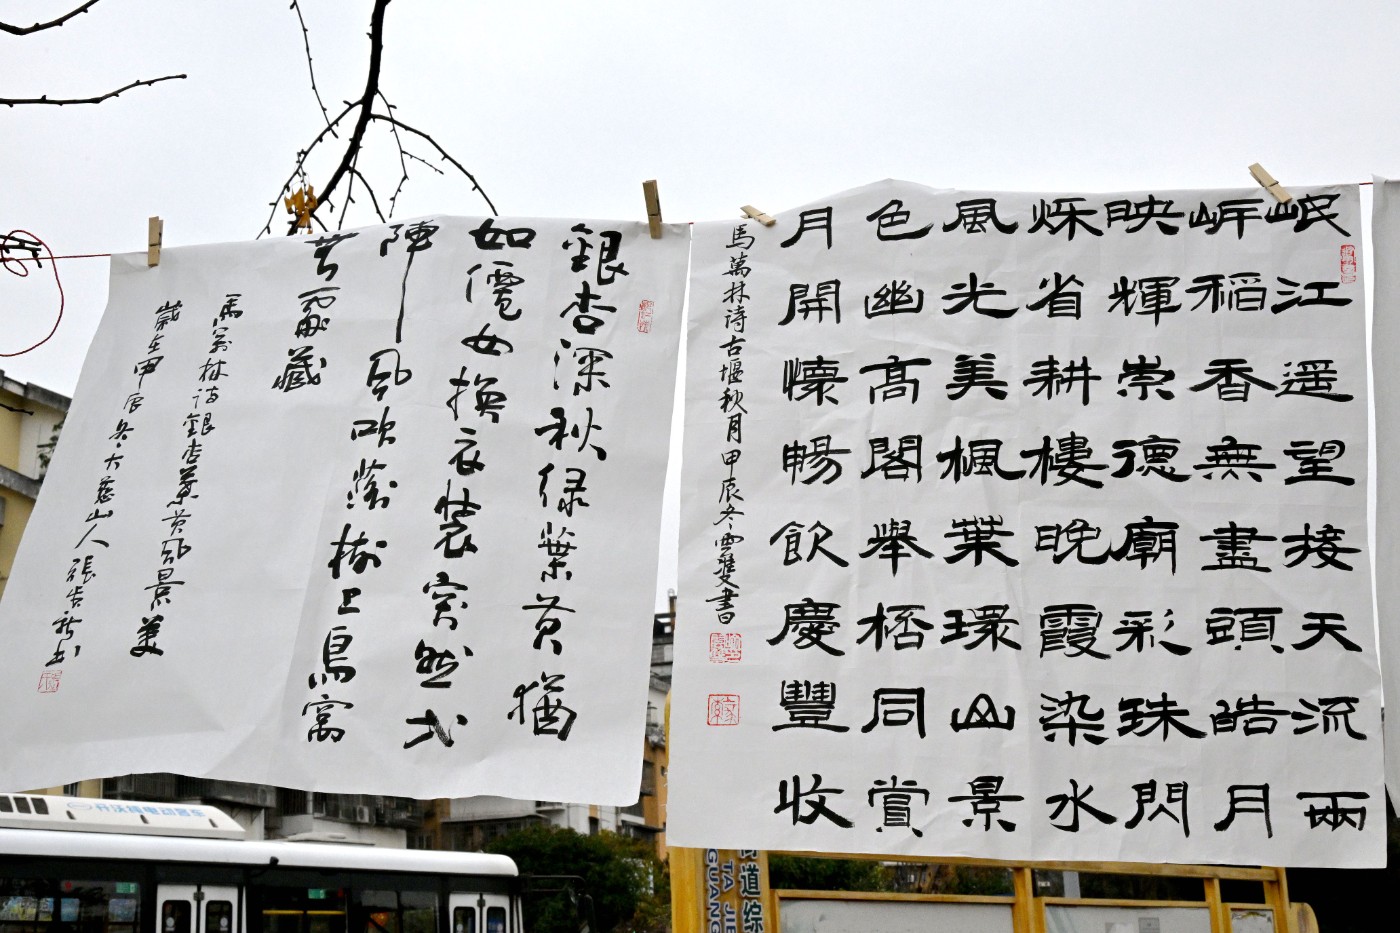 岷江遥望接天流兩
岸稻香無盡頭皓月
映輝崇德廟彩珠閃
烁省耕樓晚霞染水
風光美楓葉環山景
色幽高閣舉桮同賞
月開懷暢飲慶豐收
馬萬林诗古堰秋月甲辰冬雲雙書
銀杏深秋绿葉黄猶
如僊女换衣裝突然弌
陣風吹落樹上鳥窩
藏
馬萬林诗銀杏葉黄風景美
歲在甲辰冬大慈山人張吉新书
街道综
TA JIE
GUANG